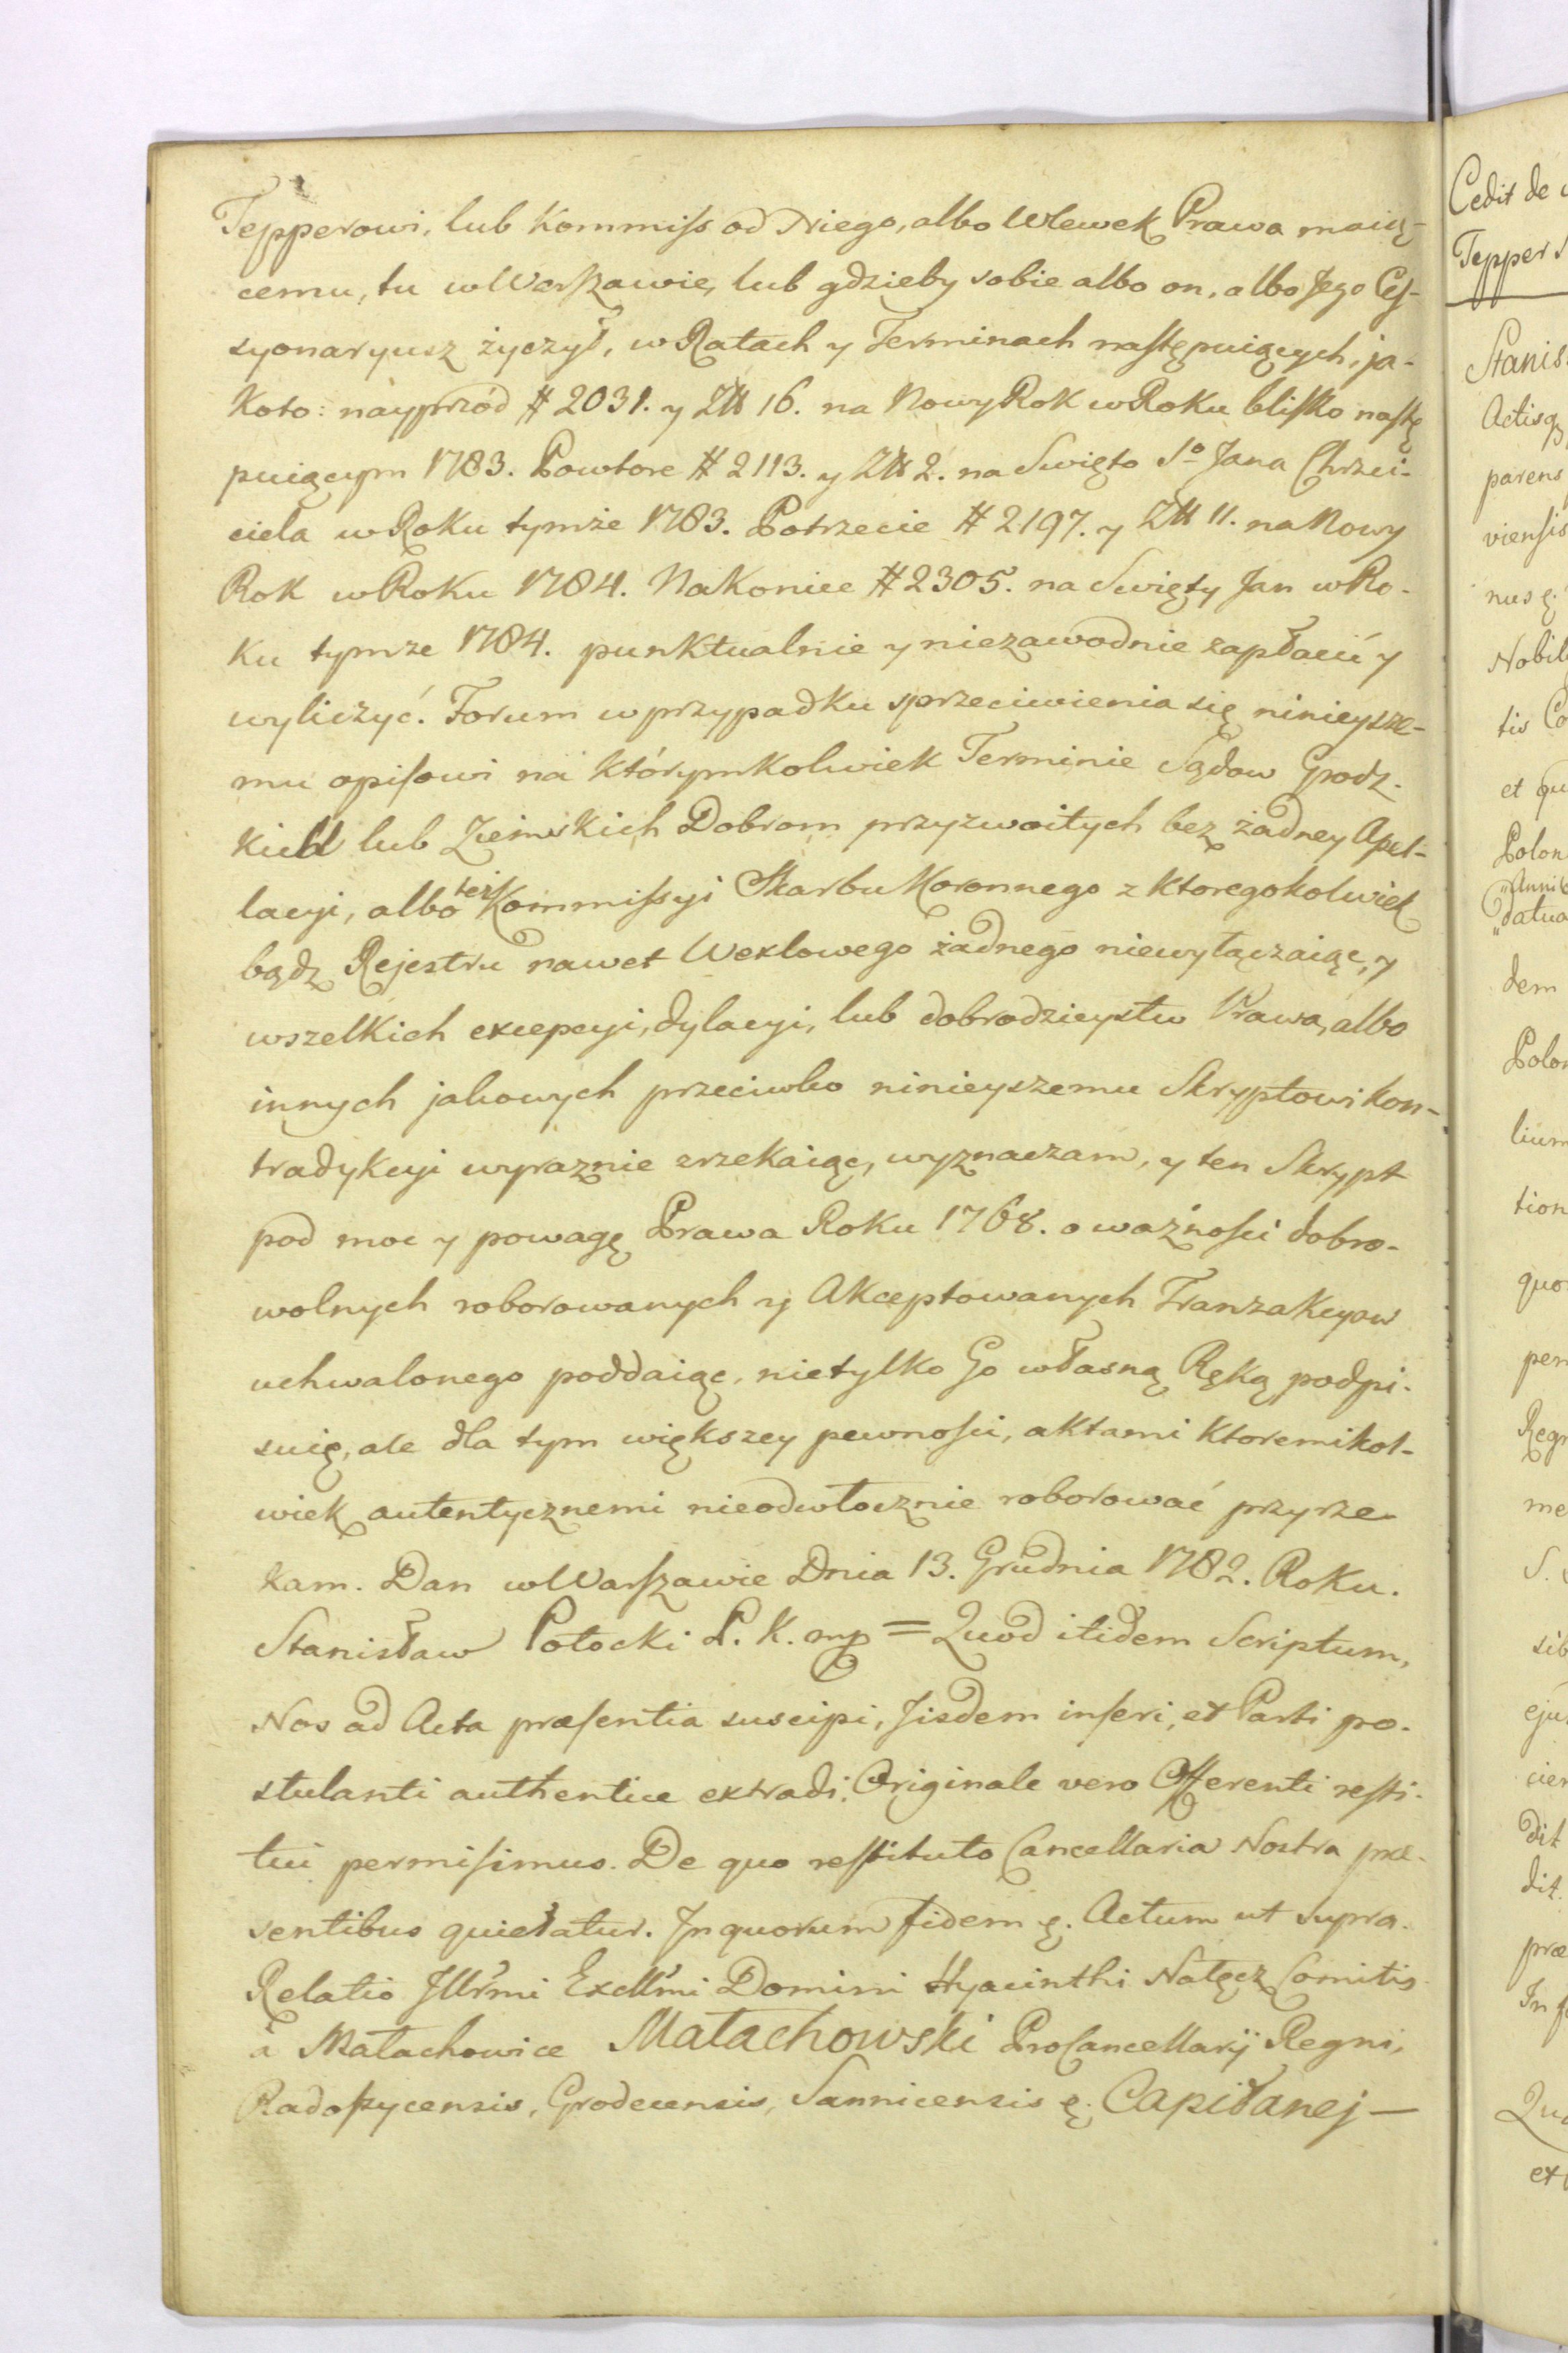 Tepperowi, lub Kommiss od Niego, albo Wlewek Prawa maią-
cemu, tu w Warszawie, lub gdzieby sobie albo on, albo Jego Ces-
syonaryusz życzył, w Ratach y Terminach następuiących, ja-
koto: nayprzód # 2031. y Zł 16. na Nowy Rok w Roku blisko nastę
puiącym 1783. Powtore # 2113. y Zł 2. na Swięto So Jana Chrzci-
ciela w Roku tymże 1783. Potrzecie # 2197. y Zł 11. na Nowy
Rok w Roku 1784. Nakoniec # 2305. na Swięty Jan w Ro-
ku tymze 1784. punktualnie y niezawodnie zapłacić y
wyliczyć. Forum w przypadku sprzeciwienia się ninieysze-
mu opisowi na którymkolwiek Terminie Sądow Grodz-
kich lub Ziemskich Dobrom przyzwoitych bez żadney Apel-
lacyi, albo też Kommissyi Skarbu Koronnego z ktoregokolwiek
bądz Rejestru nawet Wexlowego żadnego niewyłączaiąc, y
wszelkich excepcyi, dylacyi, lub dobrodzieystw Prawa, albo
innych jakowych przeciwko ninieyszemu Skryptowi kon-
tradykcyi wyraznie zrzekaiąc, wyznaczam, y ten Skrypt
pod moc y powagę Prawa Roku 1768. o ważności dobro-
wolnych roborowanych y Akceptowanych Tranzakcyow
uchwalonego poddaiąc, nietylko Go własną Ręką podpi-
suię, ale dla tym większey pewności, aktami ktoremikol-
wiek autentycznemi nieodwłocznie roborować przyrze-
kam. Dan w Warszawie Dnia 13. Grudnia 1782. Roku.
Stanisław Potocki P. K. mp = Quod itidem Scriptum,
Nos ad Acta præsentia suscipi, Iisdem inseri, et Parti po-
stulanti authentice extradi, Originale vero Offerenti resti-
tui permisimus. De quo restituto Cancellaria Nostra præ-
sentibus quietatur. In quorum fidem &. Actum ut supra.
Relatio Illrmi Excllmi Domini Hyacinthi Nałęcz Comitis
à Małachowice Małachowski ProCancellarij Regni,
Radoszycensis, Grodecensis, Sannicensis &. Capitanej —
Cedit de
Tepper
Stanis
Actisq
parens
viensis
nus &.
Nobil
tis Co
et qu
Polon
datua
dem
Polon
lium
tion
quo
per
Regn
me
S.
sib
eju
cien
dit
dit.
præ
In
Qu
ex